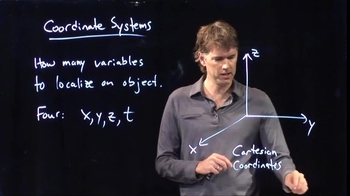 Coordinate Systems
How many variables
to localize an object.
Four: x, y, z, t
z
y
x
Cartesian
Coordinates